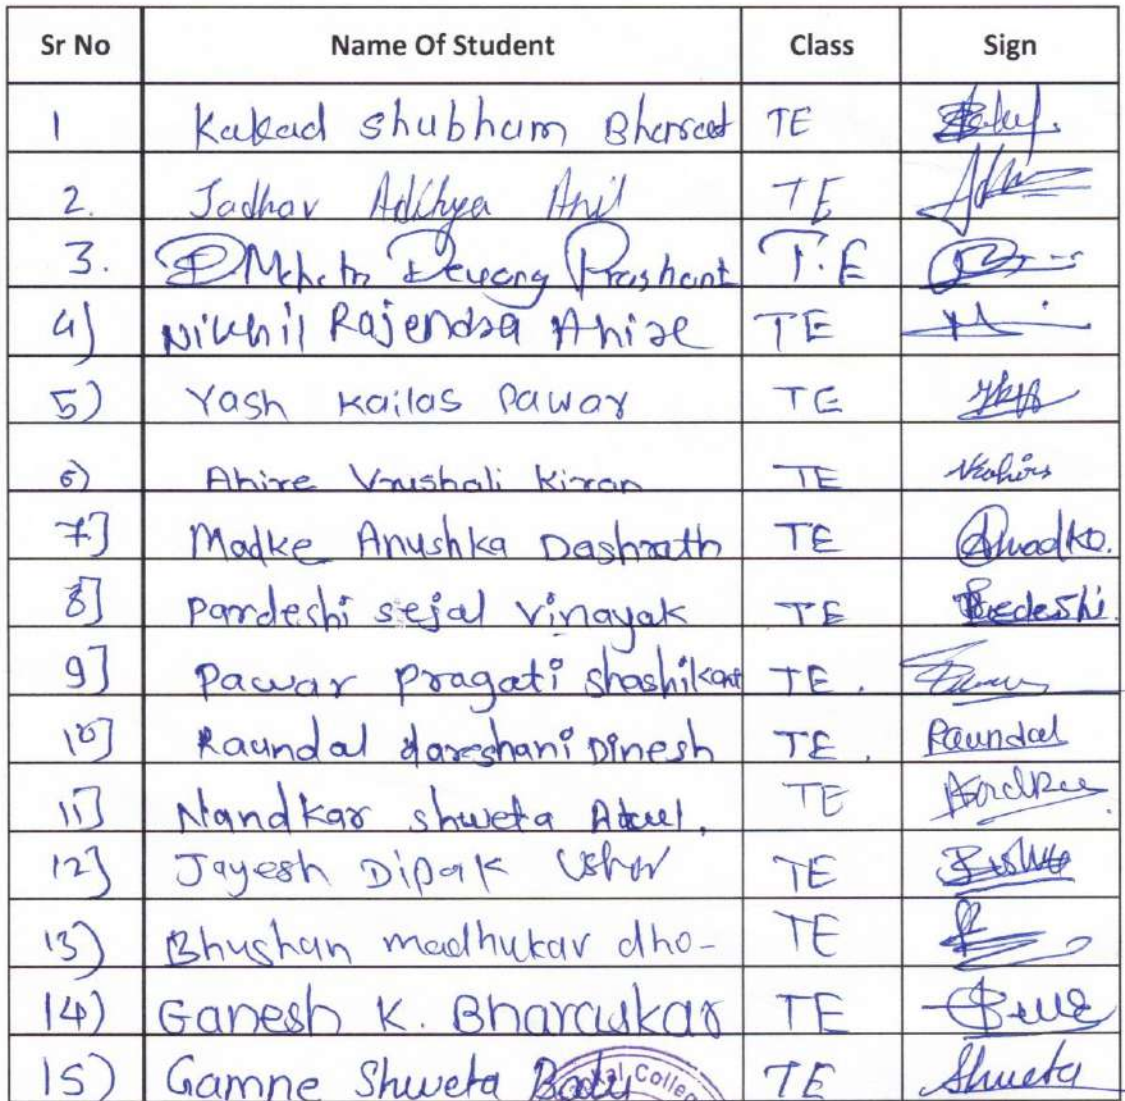 Sr No Name Of Student Class Sign
1 Kakad Shubham Bharat TE
2. Jadhav Adithya Anil TE
3. Devang Prashant T.E
4) Nikhil Rajendra Ahire TE
5) Yash Kailas Pawar TE
6) Ahire Vrushali Kiran TE
7] Madke Anushka Dashrath TE
8] Pardeshi Sejal Vinayak TE
9] Pawar Pragati Shashikant TE.
10] Raundal dareshani Dinesh TE. Raundal
11] Nandkar shweta Atul. TE
12] Jayesh Dipak TE
13) Bhushan madhukar dho- TE
14) Ganesh K. TE
15) Gamne Shweta TE Shweta